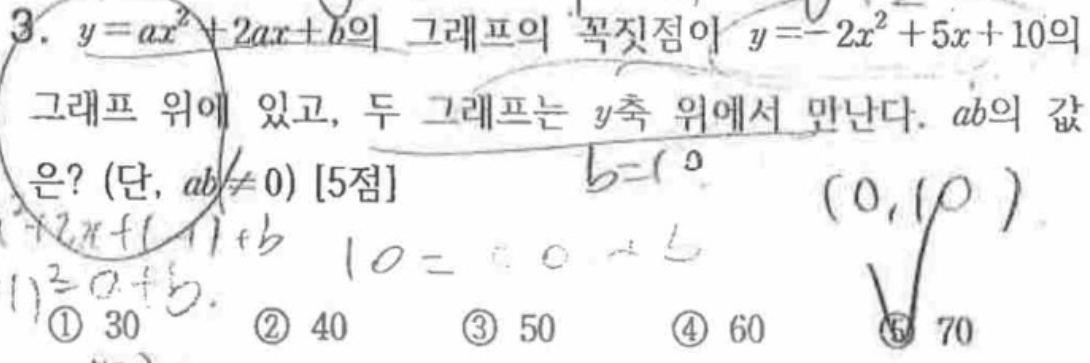 3. y=ax²+2ax+b의 그래프의 꼭짓점이 y=-2x²+5x+10의
그래프 위에 있고, 두 그래프는 y축 위에서 만난다. ab의 값
은? (단, ab≠0) [5점]
b=10
(0,10)
10=
① 30 ② 40 ③ 50 ④ 60 ⑤ 70